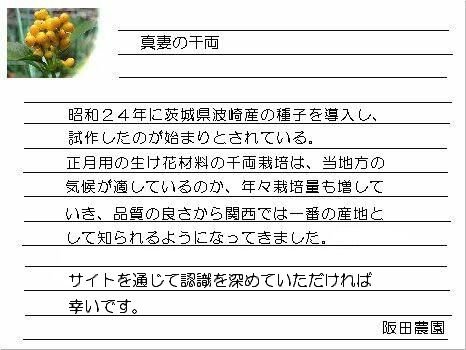 真妻の千両
昭和２４年に茨城県波崎産の種子を導入し、
試作したのが始まりとされている。
正月用の生け花材料の千両栽培は、当地方の
気候が適しているのか、年々栽培量も増して
いき、品質の良さから関西では一番の産地と
して知られるようになってきました。
サイトを通じて認識を深めていただければ
幸いです。
阪田農園